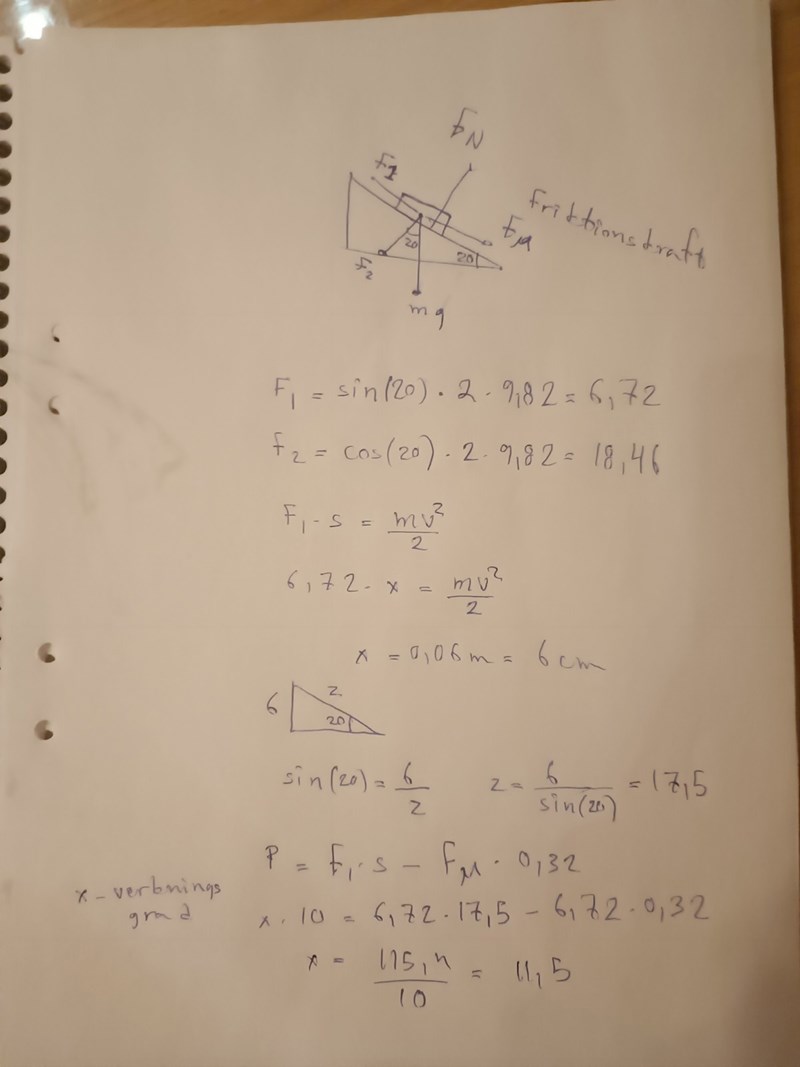 FN
F1
Fμ
Friktionskraft
20
20
F2
mg
F1 = sin(20) · 2 · 9,82 = 6,72
F2 = cos(20) · 2 · 9,82 = 18,46
F1 · s = mv²/2
6,72 · x = mv²/2
x = 0,06m = 6 cm
6
z
20
sin(20) = 6/z z = 6/sin(20) = 17,5
P = F1 · s − Fμ · 0,32
x - verbnings
grad
x · 10 = 6,72 · 17,5 − 6,72 · 0,32
x = 115,4/10 = 11,5